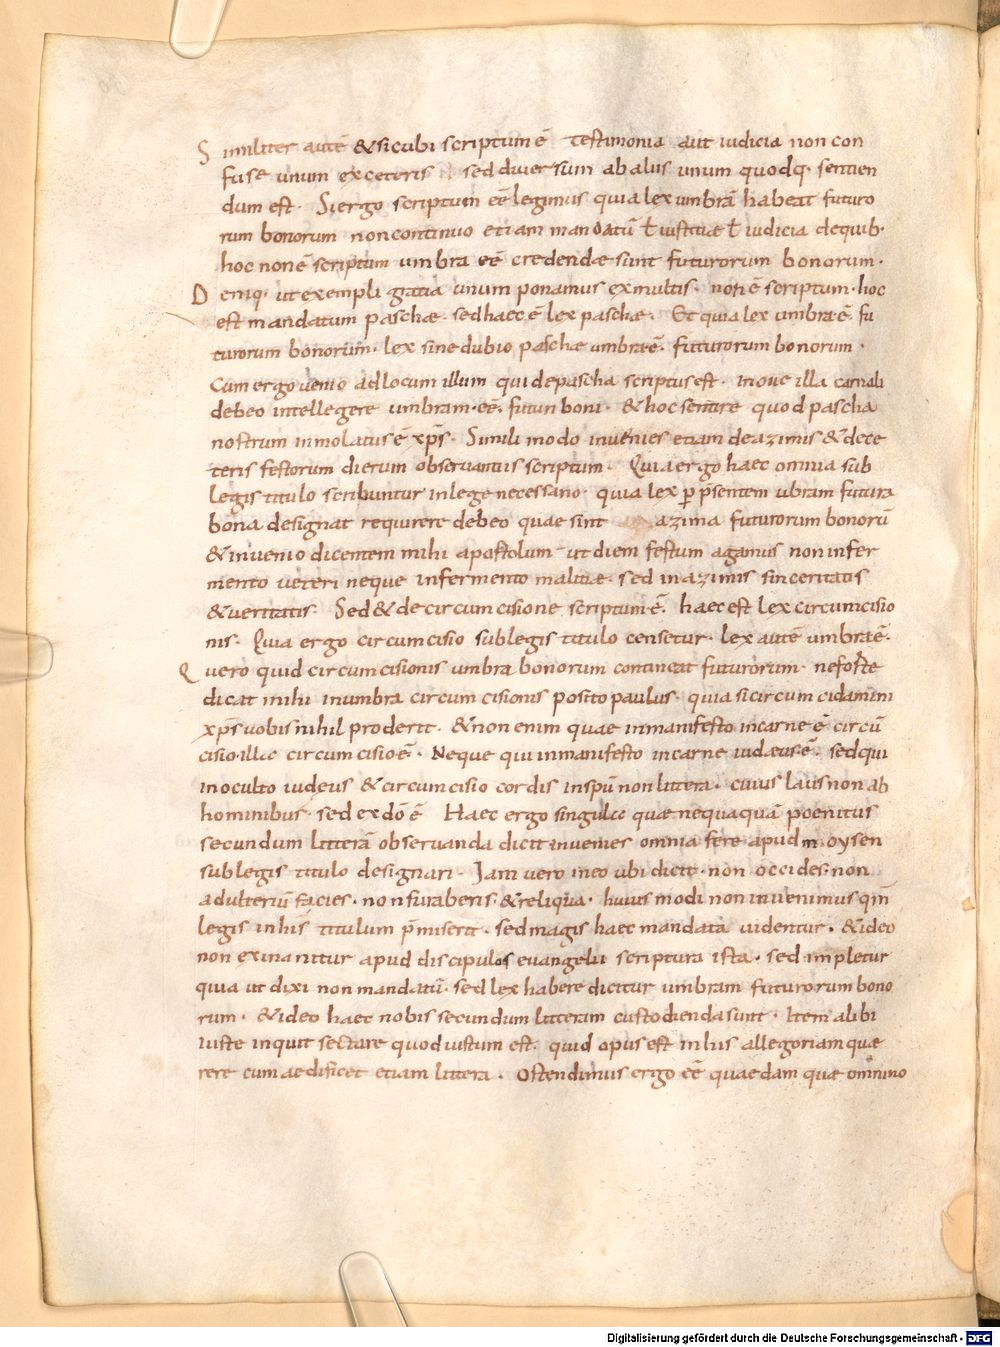 Similiter autē & sicubi scriptum ē testimonia aut iudicia non con
fuse unum ex ceteris sed diuersum ab aliis unum quodq· sentien
dum est· Si ergo scriptum eē legimus quia lex umbrā habeat futuro
rum bonorum non continuo etiam mandatū ł iustitiae ł iudicia de quib·
hoc non ē scriptum umbra eē credendae sunt futurorum bonorum·
Deniq· ut exempli gratia unum ponamus ex multis· non ē scriptum· hoc
est mandatum paschae· sed haec ē lex paschae· Et quia lex umbra ē fu
turorum bonorum· lex sine dubio paschae umbra ē· futurorum bonorum·
Cum ergo uenio ad locum illum qui de pascha scriptus est· in oue illa carnali
debeo intellegere umbram· eē· futuri boni· & hoc sentire quod pascha
nostrum inmolatus ē xp̄s· Simili modo inuenies etiam de azimis & de ce
teris festorum dierum obseruantiis scriptum· Quia ergo haec omnia sub
legis titulo scribuntur in lege necessario· quia lex p̱ p̄sentem ūbram futura
bona designat requirere debeo quae sint azima futurorum bonorū
& inuenio dicentem mihi apostolum ut diem festum agamus non in fer
mento ueteri neque in fermento malitiae· sed in azimis sinceritatis
& ueritatis· Sed & de circumcisione scriptum ē· haec est lex circumcisio
nis· Quia ergo circumcisio sub legis titulo censetur· lex autē umbra ē·
Quero quid circumcisionis umbra bonorum contineat futurorum· ne forte
dicat mihi in umbra circumcisionis posito paulus· quia si circumcidamini
xp̄s uobis nihil proderit· & non enim quae in manifesto in carne ē circū
cisio· illaec circumcisio ē· Neque qui in manifesto in carne iudaeus ē· sed qui
in oculto iudeus & circumcisio cordis in sp̄u non littera· cuius laus non ab
hominibus· sed ex dō ē Haec ergo singula quae nequaquā poenitus
secundum litterā obseruanda dicit inuenies omnia fere apud moysen
sub legis titulo designari· Iam uero in eo ubi dicit· non occides· non
adulteriū facies· non furaberis· & reliqua· huius modi non inuenimus qm̄
legis in his titulum p̄miserit· sed magis haec mandata uidentur· & ideo
non exinanitur apud discipulos euangelii scriptura ista· sed impletur
quia ut dixi non mandatū· sed lex habere dicitur umbram futurorum bono
rum· & ideo haec nobis secundum litteram custodienda sunt· Item alibi
iuste inquit sectare quod iustum est· quid opus est in his allegoriam quae
rere cum aedificet etiam littera· Ostendimus ergo eē quaedam quae omnino
Digitalisierung gefördert durch die Deutsche Forschungsgemeinschaft · DFG